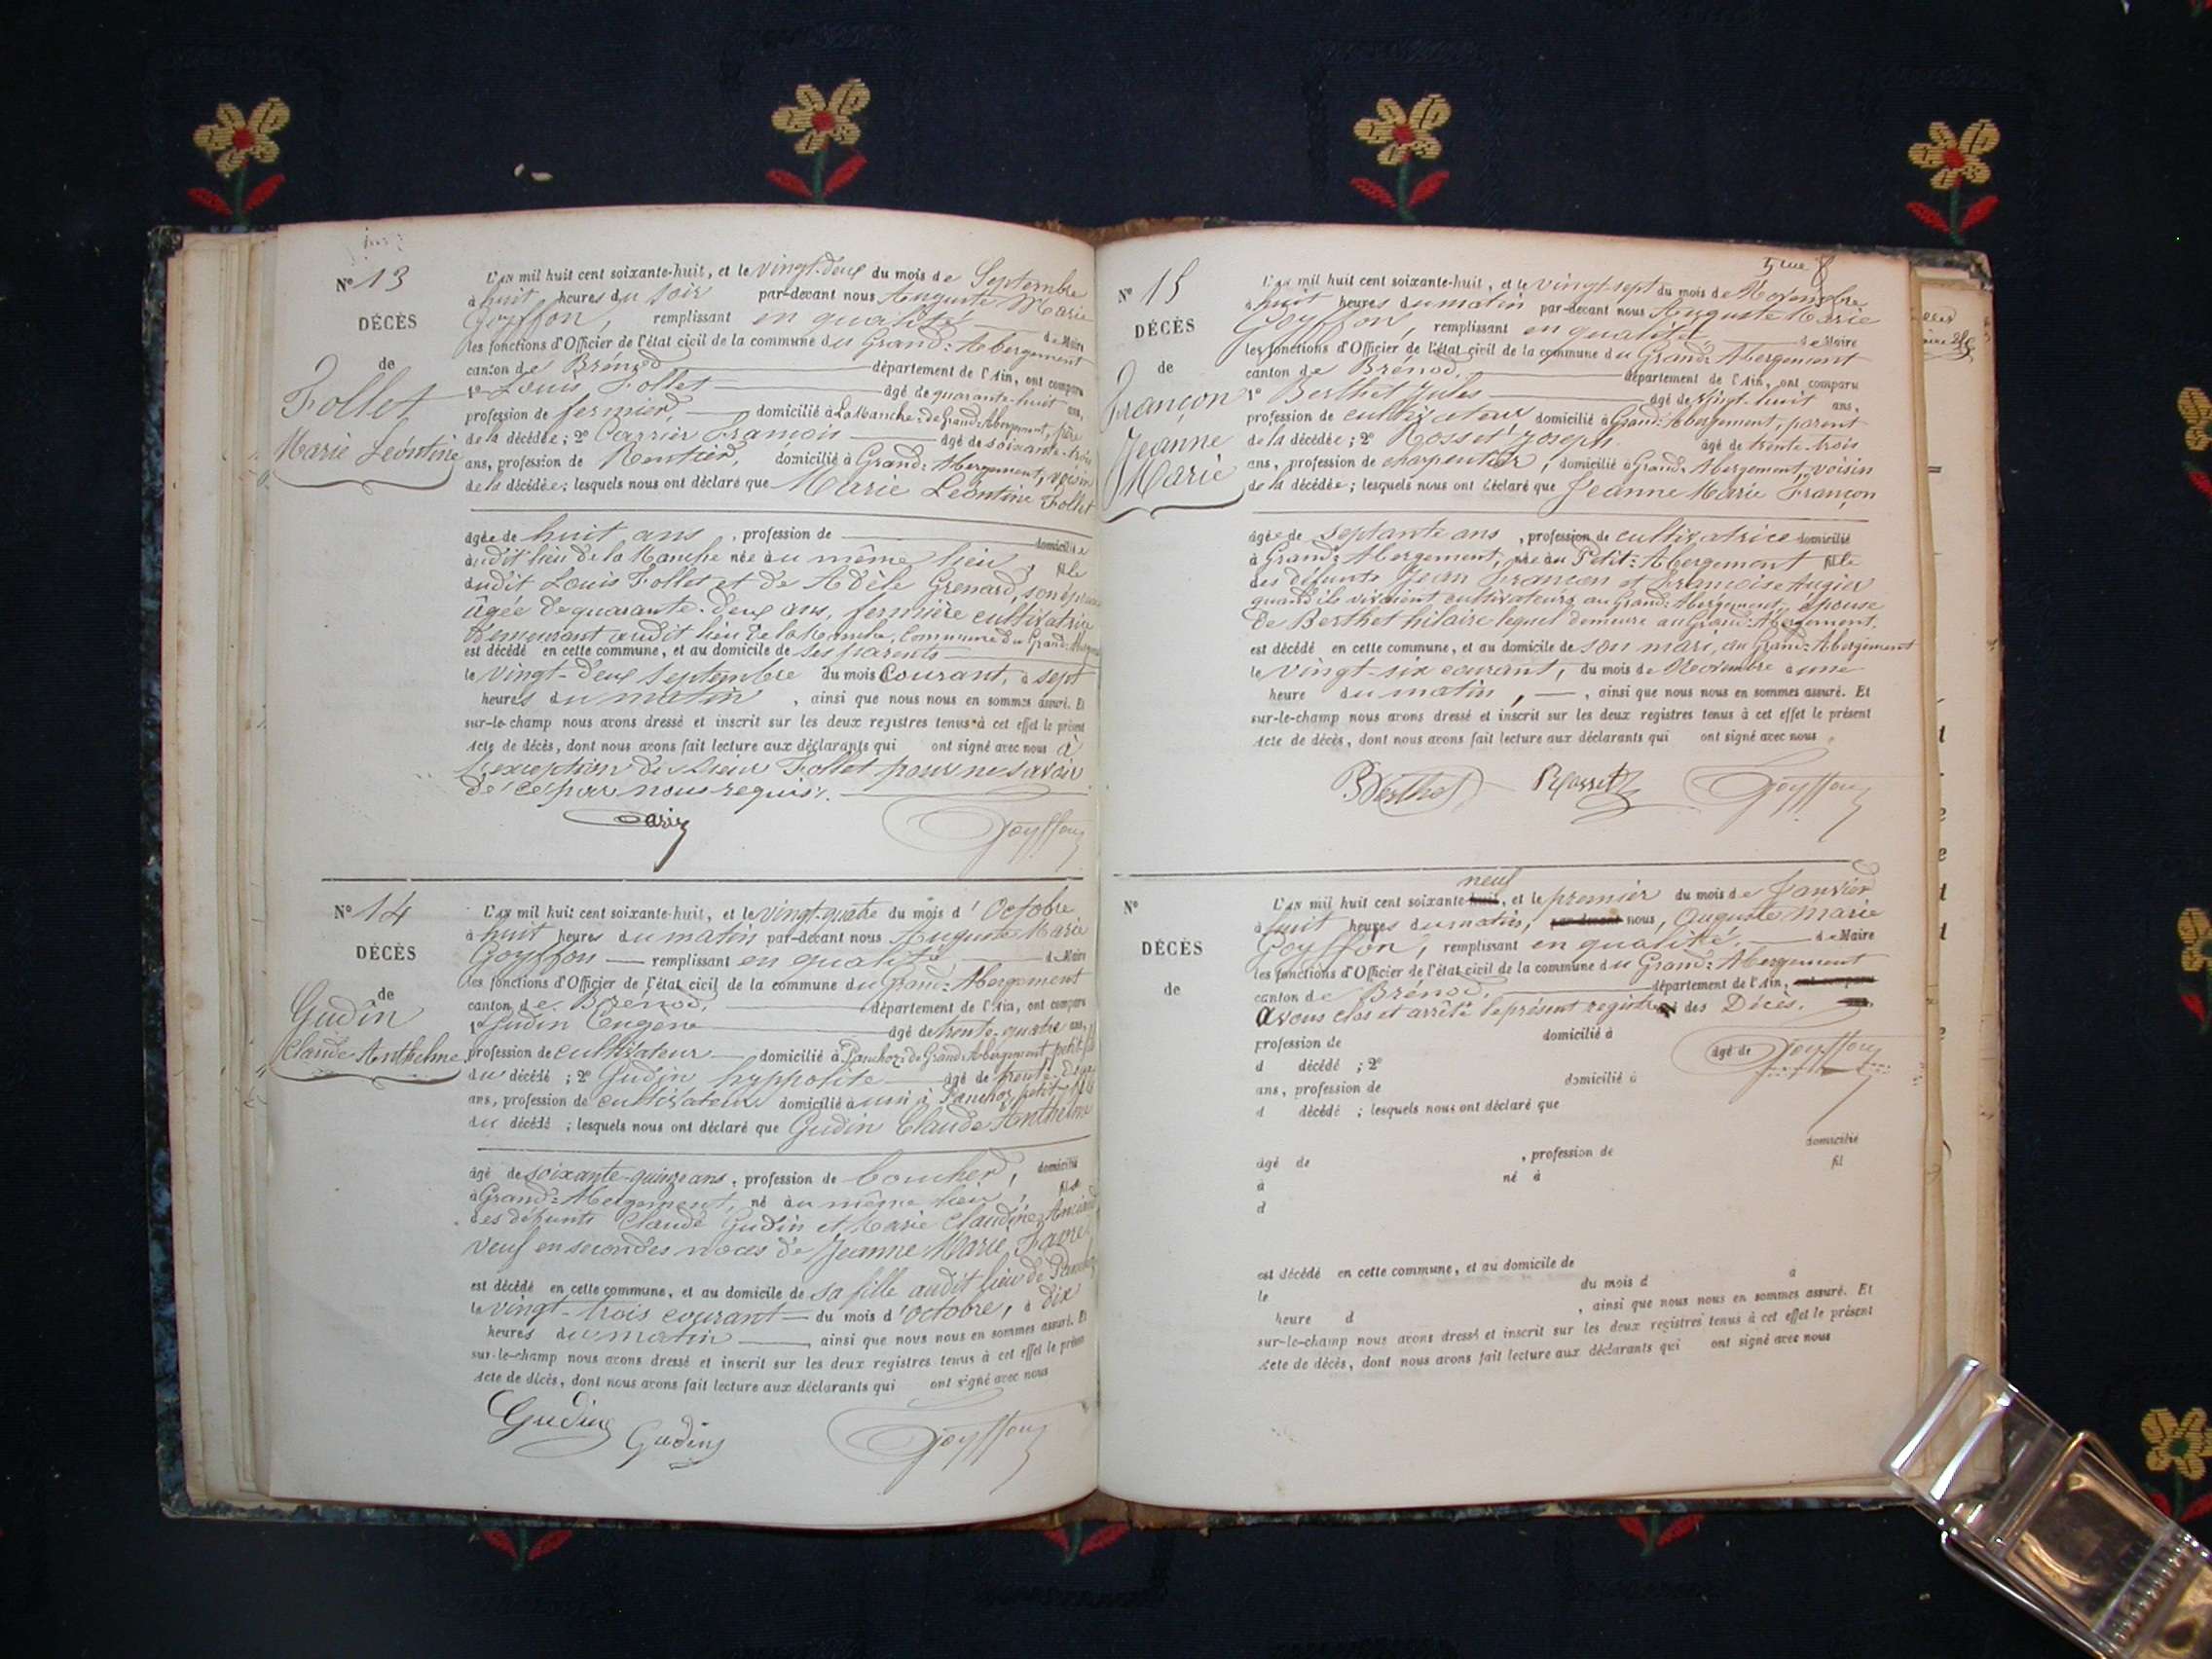 N° 13
DÉCÈS
de
Follet
Marie Leóntine
L'AN mil huit cent soixante-huit, et le vingt-deux du mois de Septembre
à huit heures du soir par-devant nous Auguste Marie
Goyffon, remplissant en qualité de Maire
les fonctions d'Officier de l'état civil de la commune du Grand-Abergement
canton de Brénod département de l'Ain, ont comparu
1° Louis Follet âgé de quarante-huit ans,
profession de fermier, domicilié à La Manche, de Grand-Abergement, père
de la décédée ; 2° Carrier François âgé de soixante-trois
ans, profession de Rentier, domicilié à Grand-Abergement, voisin
de la décédée ; lesquels nous ont déclaré que Marie Leóntine Follet
âgée de huit ans, profession de domiciliée
audit lieu de la Manche née au même lieu, fille
dudit Louis Follet et de Adèle Grenard, son épouse
âgée de quarante-deux ans, fermière cultivatrice
demeurant audit lieu de la Manche, Commune du Grand-Abergement
est décédé en cette commune, et au domicile de ses parents
le vingt-deux Septembre du mois Courant, à sept
heures du matin, ainsi que nous nous en sommes assuré. Et
sur-le-champ nous avons dressé et inscrit sur les deux registres tenus à cet effet le présent
Acte de décès, dont nous avons fait lecture aux déclarants qui ont signé avec nous à
l'exception du sieur Follet pour ne savoir
de ce par nous requis.
Goyffon
N° 14
DÉCÈS
de
Gudin
Claude Anthelme
L'AN mil huit cent soixante-huit, et le vingt-quatre du mois d'Octobre
à huit heures du matin par-devant nous Auguste Marie
Goyffon remplissant en qualité de Maire
les fonctions d'Officier de l'état civil de la commune du Grand-Abergement
canton de Brénod, département de l'Ain, ont comparu
1° Gudin Eugène âgé de trente-quatre ans,
profession de cultivateur domicilié à Panchoz, de Grand Abergement, petit-fils
du décédé ; 2° Gudin hyppolite âgé de trente-deux
ans, profession de cultivateur domicilié à Panchoz, petit-fils
du décédé ; lesquels nous ont déclaré que Gudin Claude Anthelme
âgé de soixante-quinze ans, profession de boucher, domicilié
à Grand-Abergement, né au même lieu, fils
des défunts Claude Gudin et Marie Claudine
veuf en secondes noces de Jeanne Marie Favre
est décédé en cette commune, et au domicile de sa fille audit lieu de Panchoz
le vingt-trois courant du mois d'octobre, à dix
heures du matin, ainsi que nous nous en sommes assuré. Et
sur-le-champ nous avons dressé et inscrit sur les deux registres tenus à cet effet le présent
Acte de décès, dont nous avons fait lecture aux déclarants qui ont signé avec nous
Gudin Gudin Goyffon
N° 15
DÉCÈS
de
Françon
Jeanne
Marie
L'AN mil huit cent soixante-huit, et le vingt-sept du mois de Novembre
à huit heures du matin par-devant nous Auguste Marie
Goyffon, remplissant en qualité de Maire
les fonctions d'Officier de l'état civil de la commune du Grand-Abergement
canton de Brénod, département de l'Ain, ont comparu
1° Berthet Jules âgé de vingt-huit ans,
profession de cultivateur domicilié à Grand-Abergement, parent
de la décédée ; 2° Rosset Joseph âgé de trente-trois
ans, profession de charpentier, domicilié à Grand-Abergement, voisin
de la décédée ; lesquels nous ont déclaré que Jeanne Marie Françon
âgée de septante ans, profession de cultivatrice domicilié
à Grand-Abergement, née au Petit-Abergement fille
des défunts Jean Françon et Françoise Augier
quand ils vivaient cultivateurs au Grand-Abergement, épouse
de Berthet hilaire lequel demeure au Grand-Abergement.
est décédé en cette commune, et au domicile de son mari, au Grand-Abergement
le vingt-six courant, du mois de Novembre à une
heure du matin, ainsi que nous nous en sommes assuré. Et
sur-le-champ nous avons dressé et inscrit sur les deux registres tenus à cet effet le présent
Acte de décès, dont nous avons fait lecture aux déclarants qui ont signé avec nous
Berthet Rosset Goyffon
N°
DÉCÈS
de
neuf
L'AN mil huit cent soixante-huit, et le premier du mois de Janvier
à huit heures du matin, par-devant nous, Auguste Marie
Goyffon, remplissant en qualité, de Maire
les fonctions d'Officier de l'état civil de la commune du Grand-Abergement
canton de Brénod, département de l'Ain, ont comparu
avons clos et arrêté le présent registre des Décès.
profession de domicilié à
âgé de Goyffon
d décédé ; 2°
ans, profession de domicilié à
d décédé ; lesquels nous ont déclaré que
âgé de , profession de domicilié
à né à fil
d
est décédé en cette commune, et au domicile de
le du mois d à
heure d , ainsi que nous nous en sommes assuré. Et
sur-le-champ nous avons dressé et inscrit sur les deux registres tenus à cet effet le présent
Acte de décès, dont nous avons fait lecture aux déclarants qui ont signé avec nous